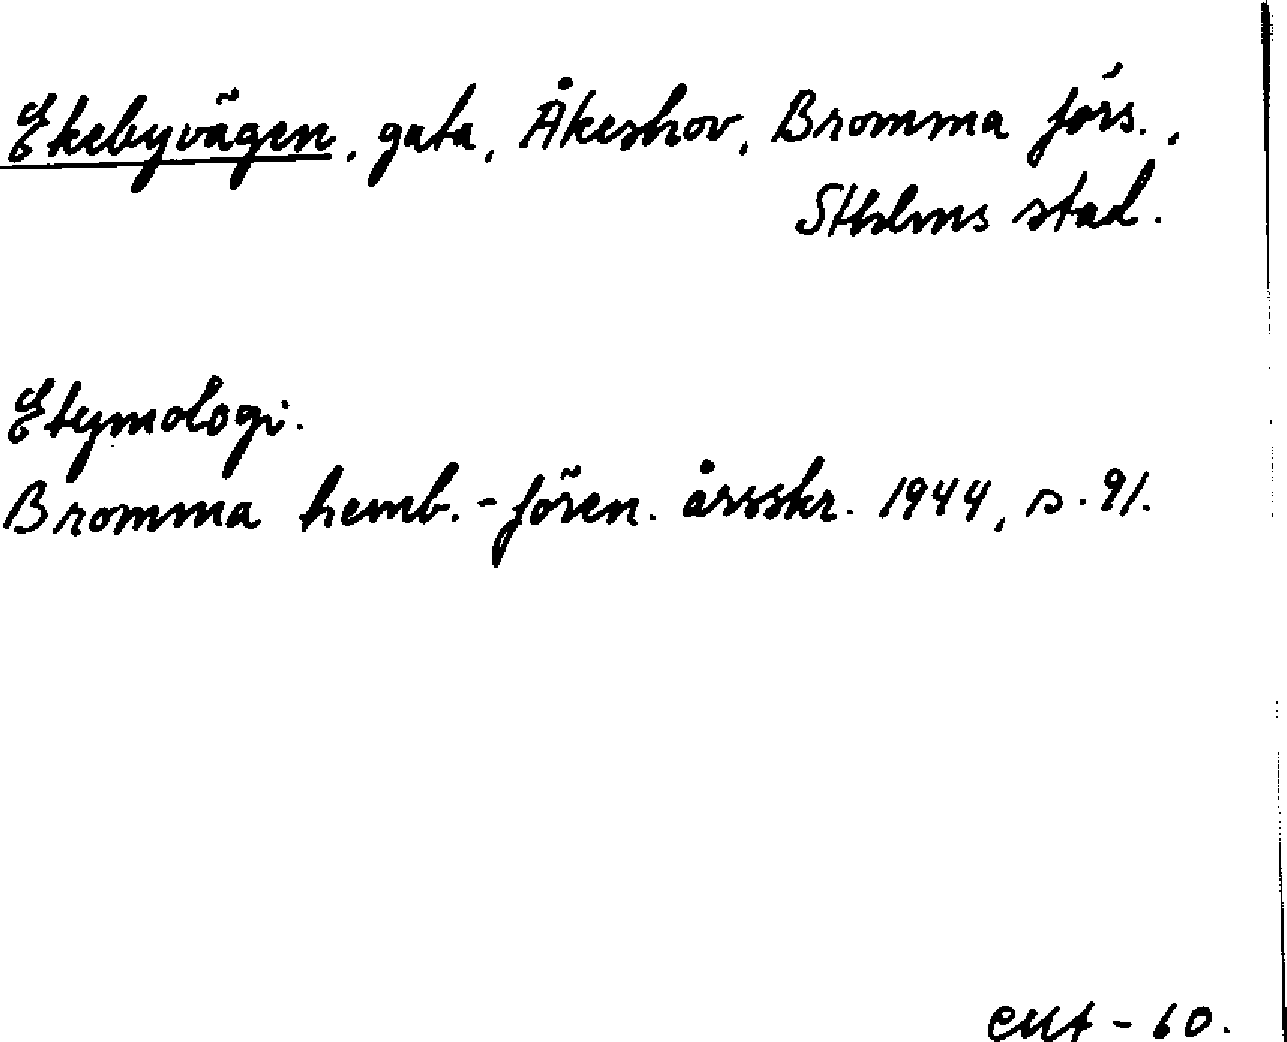 Ekebyvägen, gata, Åkeshov, Bromma förs.,
Sthlms stad.
Etymologi.
Bromma hemb.-fören. årsskr. 1944, s. 91.
- 60.